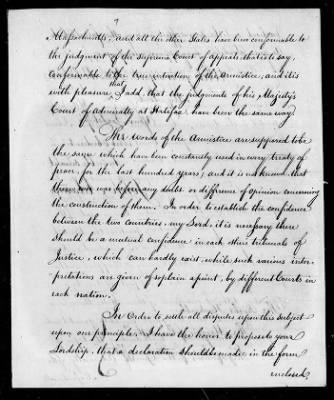 7
Massachusetts, and all the other States have been conformable to
the judgment of the supreme Court of appeals, that is to say,
conformable to the true intention of the armistice; and it is
with pleasure, I add, that the judgments of his Majesty's
Court of Admiralty at Halifax have been the same way.
The words of the Armistice are supposed to be
the same which have been constantly used in every treaty of
peace, for the last hundred years; and it is not known, that
there was before any doubt or difference of opinion concerning
the construction of them. In order to establish the confidence
between the two countries, my Lord, it is necessary there
should be a mutual confidence in each others tribunals of
Justice, which can hardly exist, while such various inter-
pretations are given of so plain a point, by different Courts in
each nation.
In order to settle all disputes upon this subject
upon one principle, I have the honor to propose to your
Lordship, that a declaration should be made in the form
enclosed,